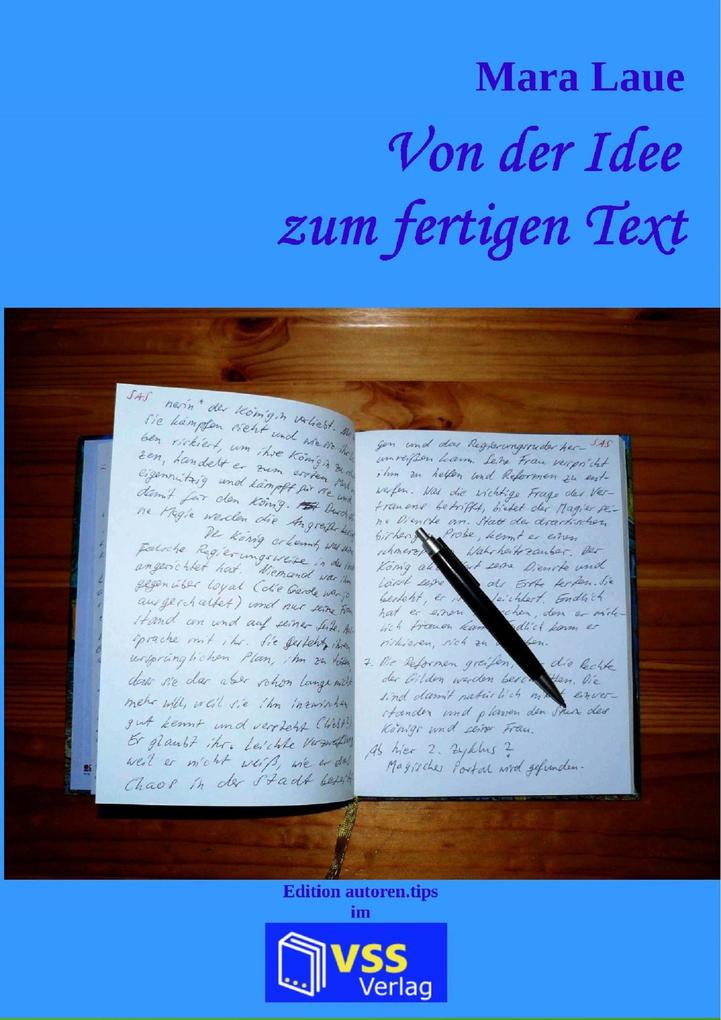 Mara Laue
Von der Idee
zum fertigen Text
SAS
nerin" der Königin verliebt.
sie kämpfen sieht und wie sie ihr
ben riskiert, um ihre Königin zu
zen, handelt er zum ersten Mal
eigennützig und kämpft für sie und
damit für den König. Durch
ne Magie werden die Angreifer
Der König erkennt, was seine
falsche Regierungsweise in der
angerichtet hat. Niemand war ihm
gegenüber loyal (die Garde war ja
ausgeschaltet) und nur seine Frau
stand an und auf seiner Seite.
sprache mit ihr. Sie gesteht ihren
ursprünglichen Plan, ihn zu töten
dass sie das aber schon lange nicht
mehr will, weil sie ihn inzwischen
gut kennt und versteht (liebt?).
Er glaubt ihr. Leichte Verzweiflung
weil er nicht weiß, wie er das
Chaos in der Stadt
SAS
gen und das Regierungsruder her-
umreißen kann. Seine Frau verspricht
ihm zu helfen und Reformen zu ent-
werfen. Was die wichtige Frage des Ver-
trauens betrifft, bietet der Magier sei-
ne Dienste an. Statt der drastischen
Probe, kennt er einen
Wahrheitszauber. Der
König seine Dienste und
lässt seine der Erste testen. Sie
besteht, er ist erleichtert. Endlich
hat er einen Menschen, dem er wirk-
lich trauen kann. Endlich kann er
riskieren, sich zu
7. Die Reformen greifen, die Rechte
der Gilden werden beschnitten. Die
sind damit natürlich nicht einver-
standen und planen den Sturz des
Königs und seiner Frau.
Ab hier 2. Zyklus?
Magisches Portal wird gefunden.
Edition autoren.tips
im
VSS
Verlag